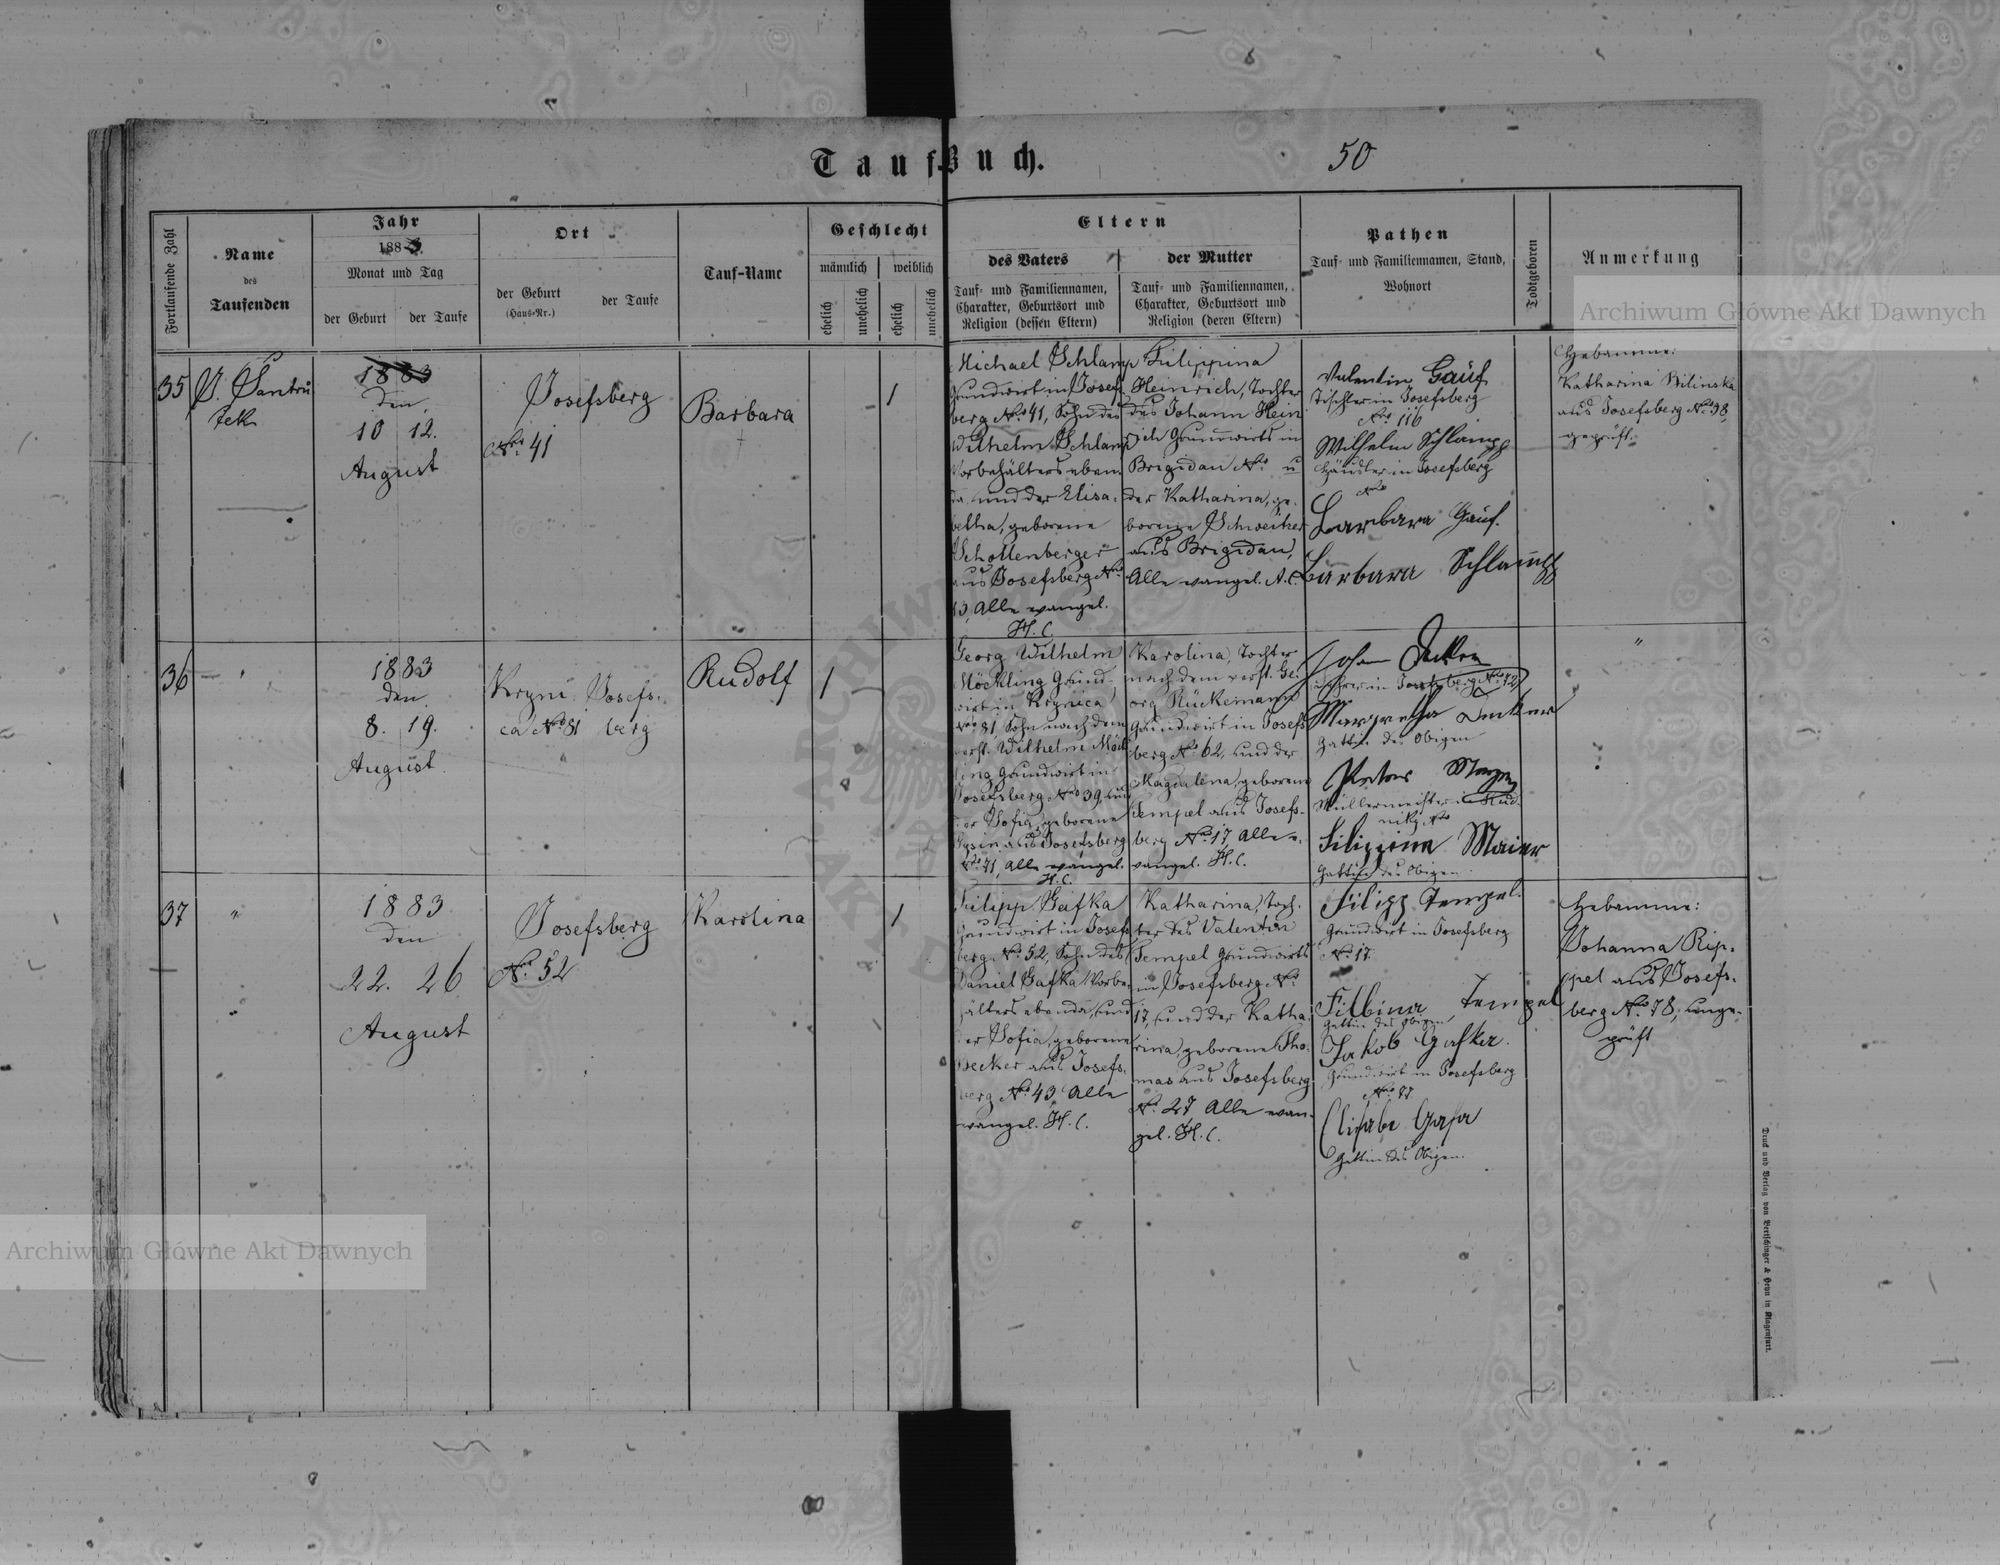 Tauf-Buch.
50
Fortlaufende Zahl
Name
des
Taufenden
Jahr
1883.
Monat und Tag
der Geburt
der Taufe
Ort
der Geburt
(Haus-Nr.)
der Taufe
Tauf-Name
Geschlecht
männlich
weiblich
ehelich
unehelich
ehelich
unehelich
Eltern
des Vaters
Tauf- und Familiennamen,
Charakter, Geburtsort und
Religion (dessen Eltern)
der Mutter
Tauf- und Familiennamen,
Charakter, Geburtsort und
Religion (deren Eltern)
Pathen
Tauf- und Familiennamen, Stand,
Wohnort
Todtgeboren
Anmerkung
35
1883
den
10 12.
August
Josefsberg
No 41
Barbara
1
Michael Schlamp
Grundwirt in Josefs
berg No 41, Sohn des
Wilhelm Schlamp
Vorbehälters eben
da, und der Elisa-
betha, geborene
Schollenberger
aus Josefsberg No
Alle evangel.
H. C.
Filippina
Heinrich, Tochter
des Johann Hein
rich Grundwirts in
Brigidau No u
der Katharina, ge-
borene Schweitzer
aus Brigidau,
Alle evangel. A. C.
Valentin Gauf
Tischler in Josefsberg
No 116
Wilhelm Schlampp
Händler in Josefsberg
No
Barbara Gauf.
Barbara Schlampp
Hebamme:
Katharina Bilinska
aus Josefsberg No 38,
geprüft.
36
"
1883
den
8. 19.
August
Kryni Josefs-
ca No 81 berg
Rudolf
1
Georg Wilhelm
Möckling Grund-
wirt in Krynica
No 81, Sohn nach dem
verst. Wilhelm Möck
ling Grundwirt in
Josefsberg No 39, und
der Sofia, geborene
aus Josefsberg
No 71, Alle evangel.
H. C.
Karolina, Tochter
nach dem verst. Ge-
org Rückemann
Grundwirt in Josefs
berg No 62, und der
Magdalena, geborene
Tempel aus Josefs-
berg No 17, Alle e-
vangel. H. C.
Johann Decker
in Josefsberg No 72
Margretha Decker
Gattin des Obigen
Peter
Müllermeister in Rud-
niki No
Filippina Maier
Gattin des Obigen
"
37
"
"
1883
den
22. 26
August
Josefsberg
No 52
Karolina
1
Filipp Gafka
Grundwirt in Josefs
berg No 52, Sohn des
Daniel Gafka Vorbe-
hälters ebenda, und
der Sofia, geborene
Becker aus Josefs-
berg No 43, Alle
evangel. H. C.
Katharina, Toch-
ter des Valentin
Tempel Grundwirts
in Josefsberg No
17, und der Katha-
rina, geborene Tho-
mas aus Josefsberg
No 27, Alle evan-
gel. H. C.
Filipp Tempel.
Grundwirt in Josefsberg
No 17
Filbina Tempel
Gattin des Obigen
Jakob Gafka.
Grundwirt in Josefsberg
No 87
Gattin des Obigen.
Hebamme:
Johanna Rip-
pel aus Josefs-
berg No 78, unge-
prüft
Druck und Verlag von Bertschinger & Heyn in Klagenfurt.
Archiwum Główne Akt Dawnych
Archiwum Główne Akt Dawnych